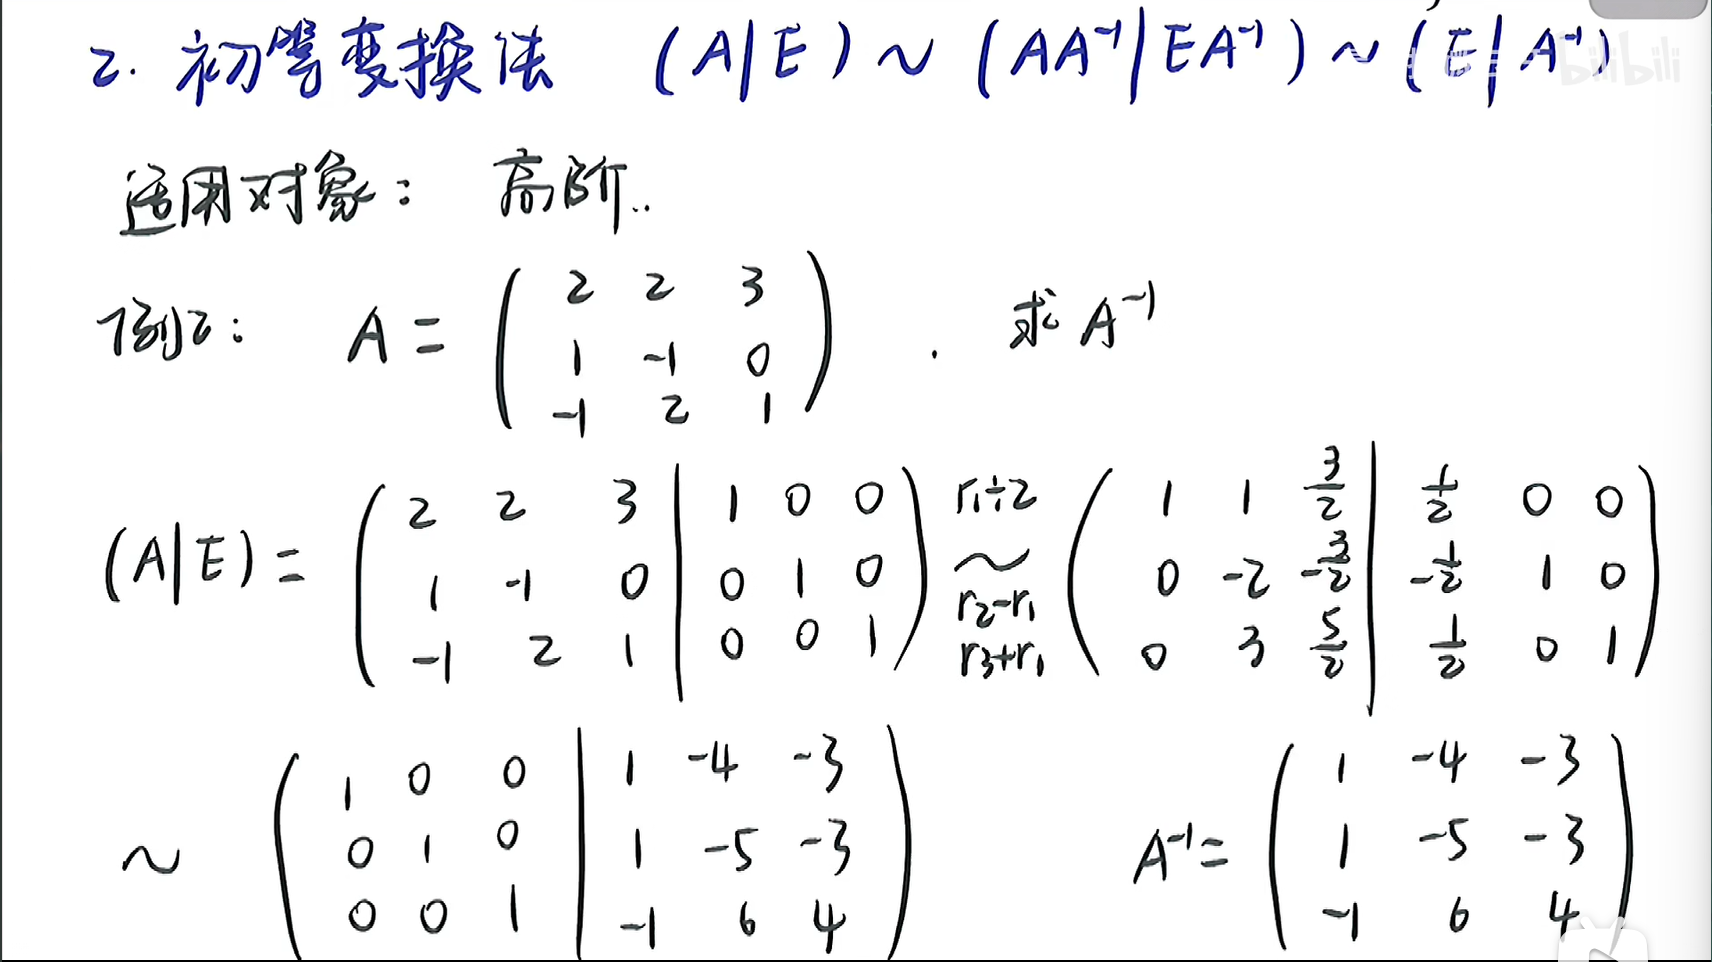 2. 初等变换法 (A|E) ~ (AA⁻¹|EA⁻¹) ~ (E|A⁻¹)
bilibili
适用对象： 高阶..
例2： A = ( 2 2 3 ; 1 -1 0 ; -1 2 1 ) . 求 A⁻¹
(A|E) = ( 2 2 3 | 1 0 0 ; 1 -1 0 | 0 1 0 ; -1 2 1 | 0 0 1 ) r₁÷2 ~ r₂-r₁ r₃+r₁ ( 1 1 3/2 | 1/2 0 0 ; 0 -2 -3/2 | -1/2 1 0 ; 0 3 5/2 | 1/2 0 1 )
~ ( 1 0 0 | 1 -4 -3 ; 0 1 0 | 1 -5 -3 ; 0 0 1 | -1 6 4 ) A⁻¹ = ( 1 -4 -3 ; 1 -5 -3 ; -1 6 4 )